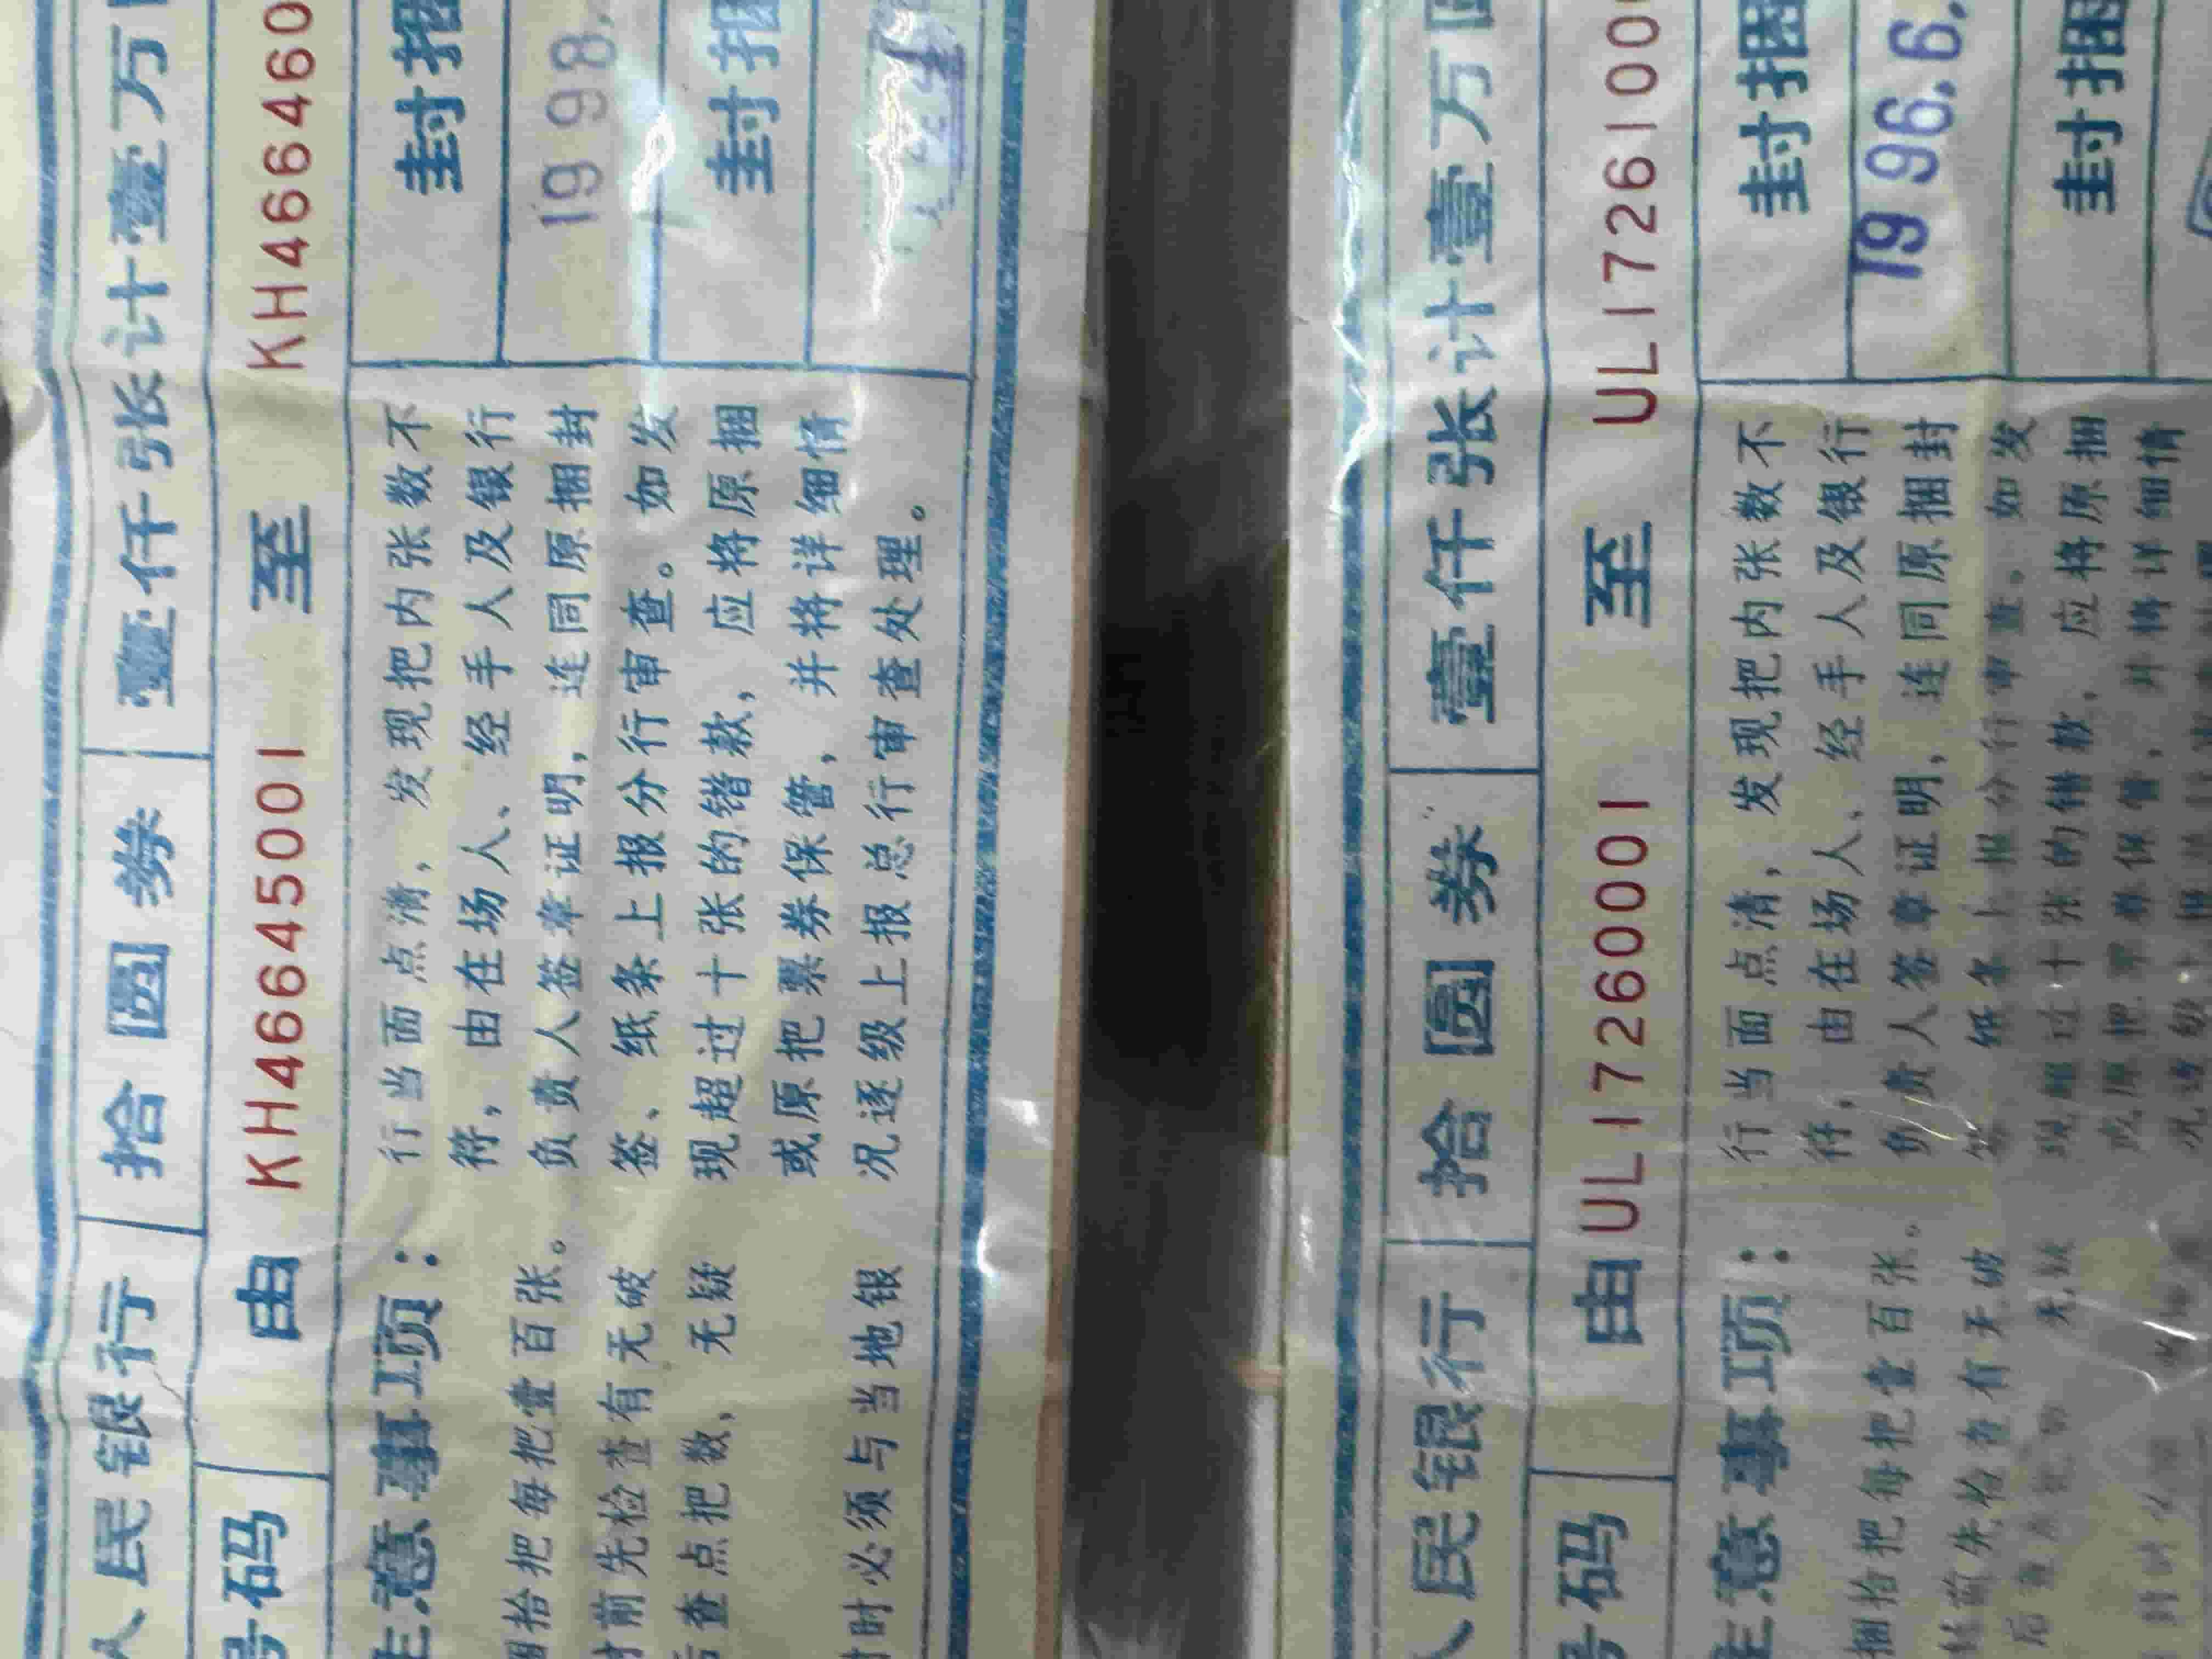 人民银行 拾圆券 壹仟张计壹万
号码 由 KH46645001 至 KH466460
注意事项：
捆拾把每把壹百张。
封前先检查有无破
后查点把数，无疑
时必须与当地银
行当面点清，发现把内张数不
符，由在场人、经手人及银行
负责人签章证明，连同原捆封
签、纸条上报分行审查。如发
现超过十张的错款，应将原捆
或原把票券保管，并将详细情
况逐级上报总行审查处理。
封捆
1998.
封捆
人民银行 拾圆券 壹仟张计壹万
号码 由 UL17260001 至 UL1726100
注意事项：
捆拾把每把壹百张。
前先检查有无破
行当面点清，发现把内张数不
符，由在场人、经手人及银行
负责人签章证明，连同原捆封
签、纸条上报分行审查。如发
现超过十张的错款，应将原捆
或原把票券保管，并将详细情
况逐级
封捆
1996.6.
封捆